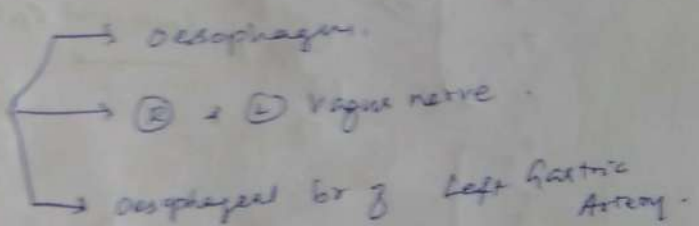 → oesophagus.
→ Ⓡ & Ⓛ vagus nerve.
→ oesophageal br of Left Gastric
Artery.